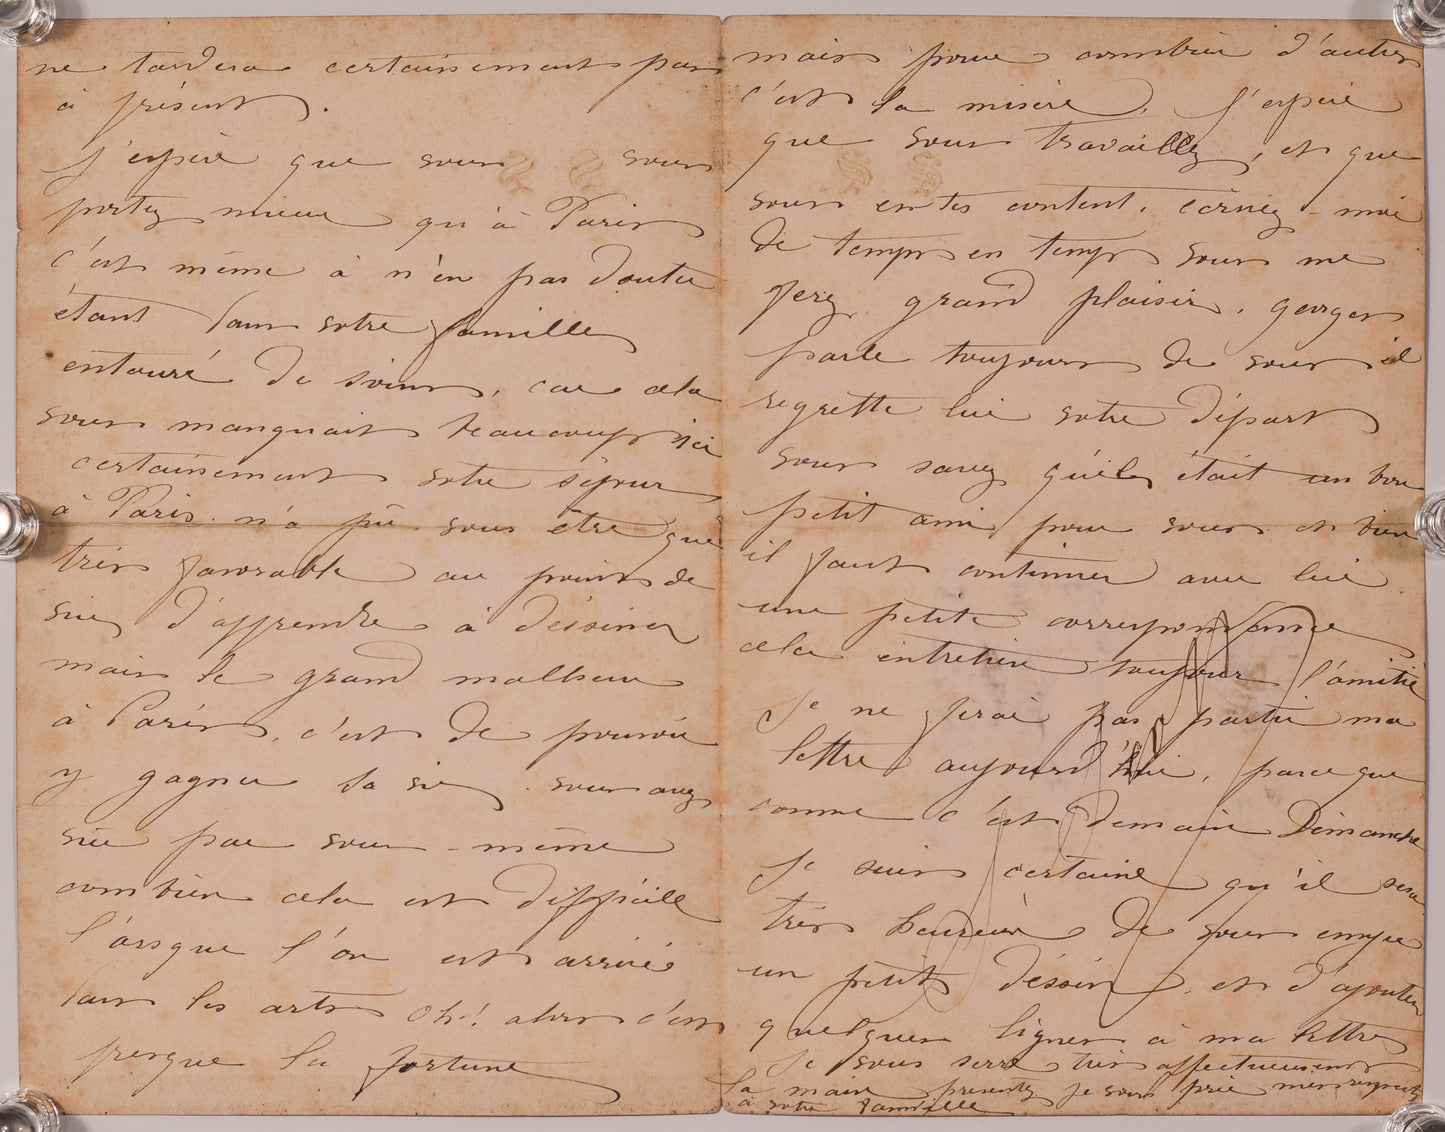 ne tardera certainement pas
à présent.
J'espère que vous vous
portez mieux qu'à Paris
c'est même à n'en pas douter
étant dans votre famille
entouré de soins, car cela
vous manquait beaucoup ici
certainement votre séjour
à Paris n'a pû vous être que
très favorable au point de
vue d'apprendre à déssiner
mais le grand malheur
à Paris, c'est de pouvoir
y gagner sa vie, vous avez
vu par vous-même
combien cela est difficile
l'orsque l'on est arrivé
dans les arts Oh! alors c'est
presque la fortune
mais pour combien d'autres
c'est la misère, J'espère
que vous travaillez, et que
vous en tes content. écrivez-moi
de temps en temps vous me
ferez grand plaisir, georges
parle toujours de vous il
regrette lui votre départ
vous savez qu'il était un bon
petit ami pour vous et bien
il faut continuer avec lui
une petite correspondance
cela entretien toujour l'amitié
Je ne ferai pas partir ma
lettre aujourd'hui, parce que
comme c'est demain Dimanche
Je suis certaine qu'il sera
très heureux de vous envoyer
un petit déssin, et d'ajouter
quelques lignes à ma lettre
Je vous serre très affectueusement
la main présentez je vous prie mes respects
à votre famille